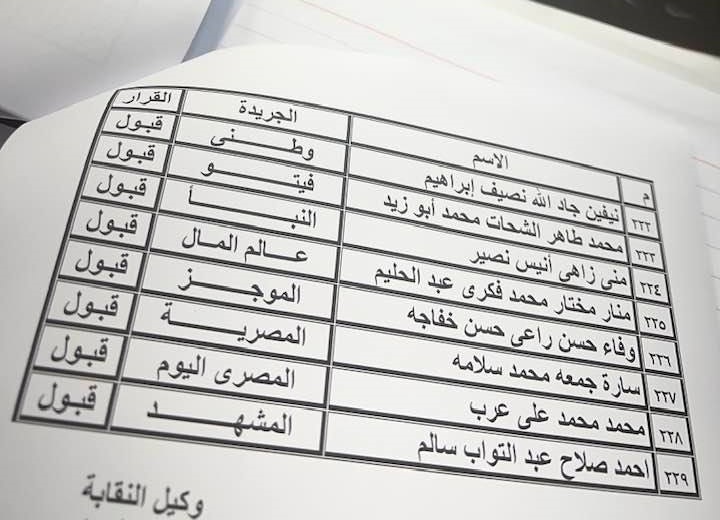 م الاسم الجريدة القرار
٢٢٢ نيفين جاد الله نصيف إبراهيم وطـــنى قبول
٢٢٣ محمد طاهر الشحات محمد أبو زيد فيتـــو قبول
٢٢٤ منى زاهى أنيس نصير النبـــأ قبول
٢٢٥ منار مختار محمد فكرى عبد الحليم عـالم المال قبول
٢٢٦ وفاء حسن راعى حسن خفاجه الموجـــز قبول
٢٢٧ سارة جمعه محمد سلامه المصريـــة قبول
٢٢٨ محمد محمد على عرب المصرى اليوم قبول
٢٢٩ احمد صلاح عبد التواب سالم المشهـــد قبول
وكيل النقابة